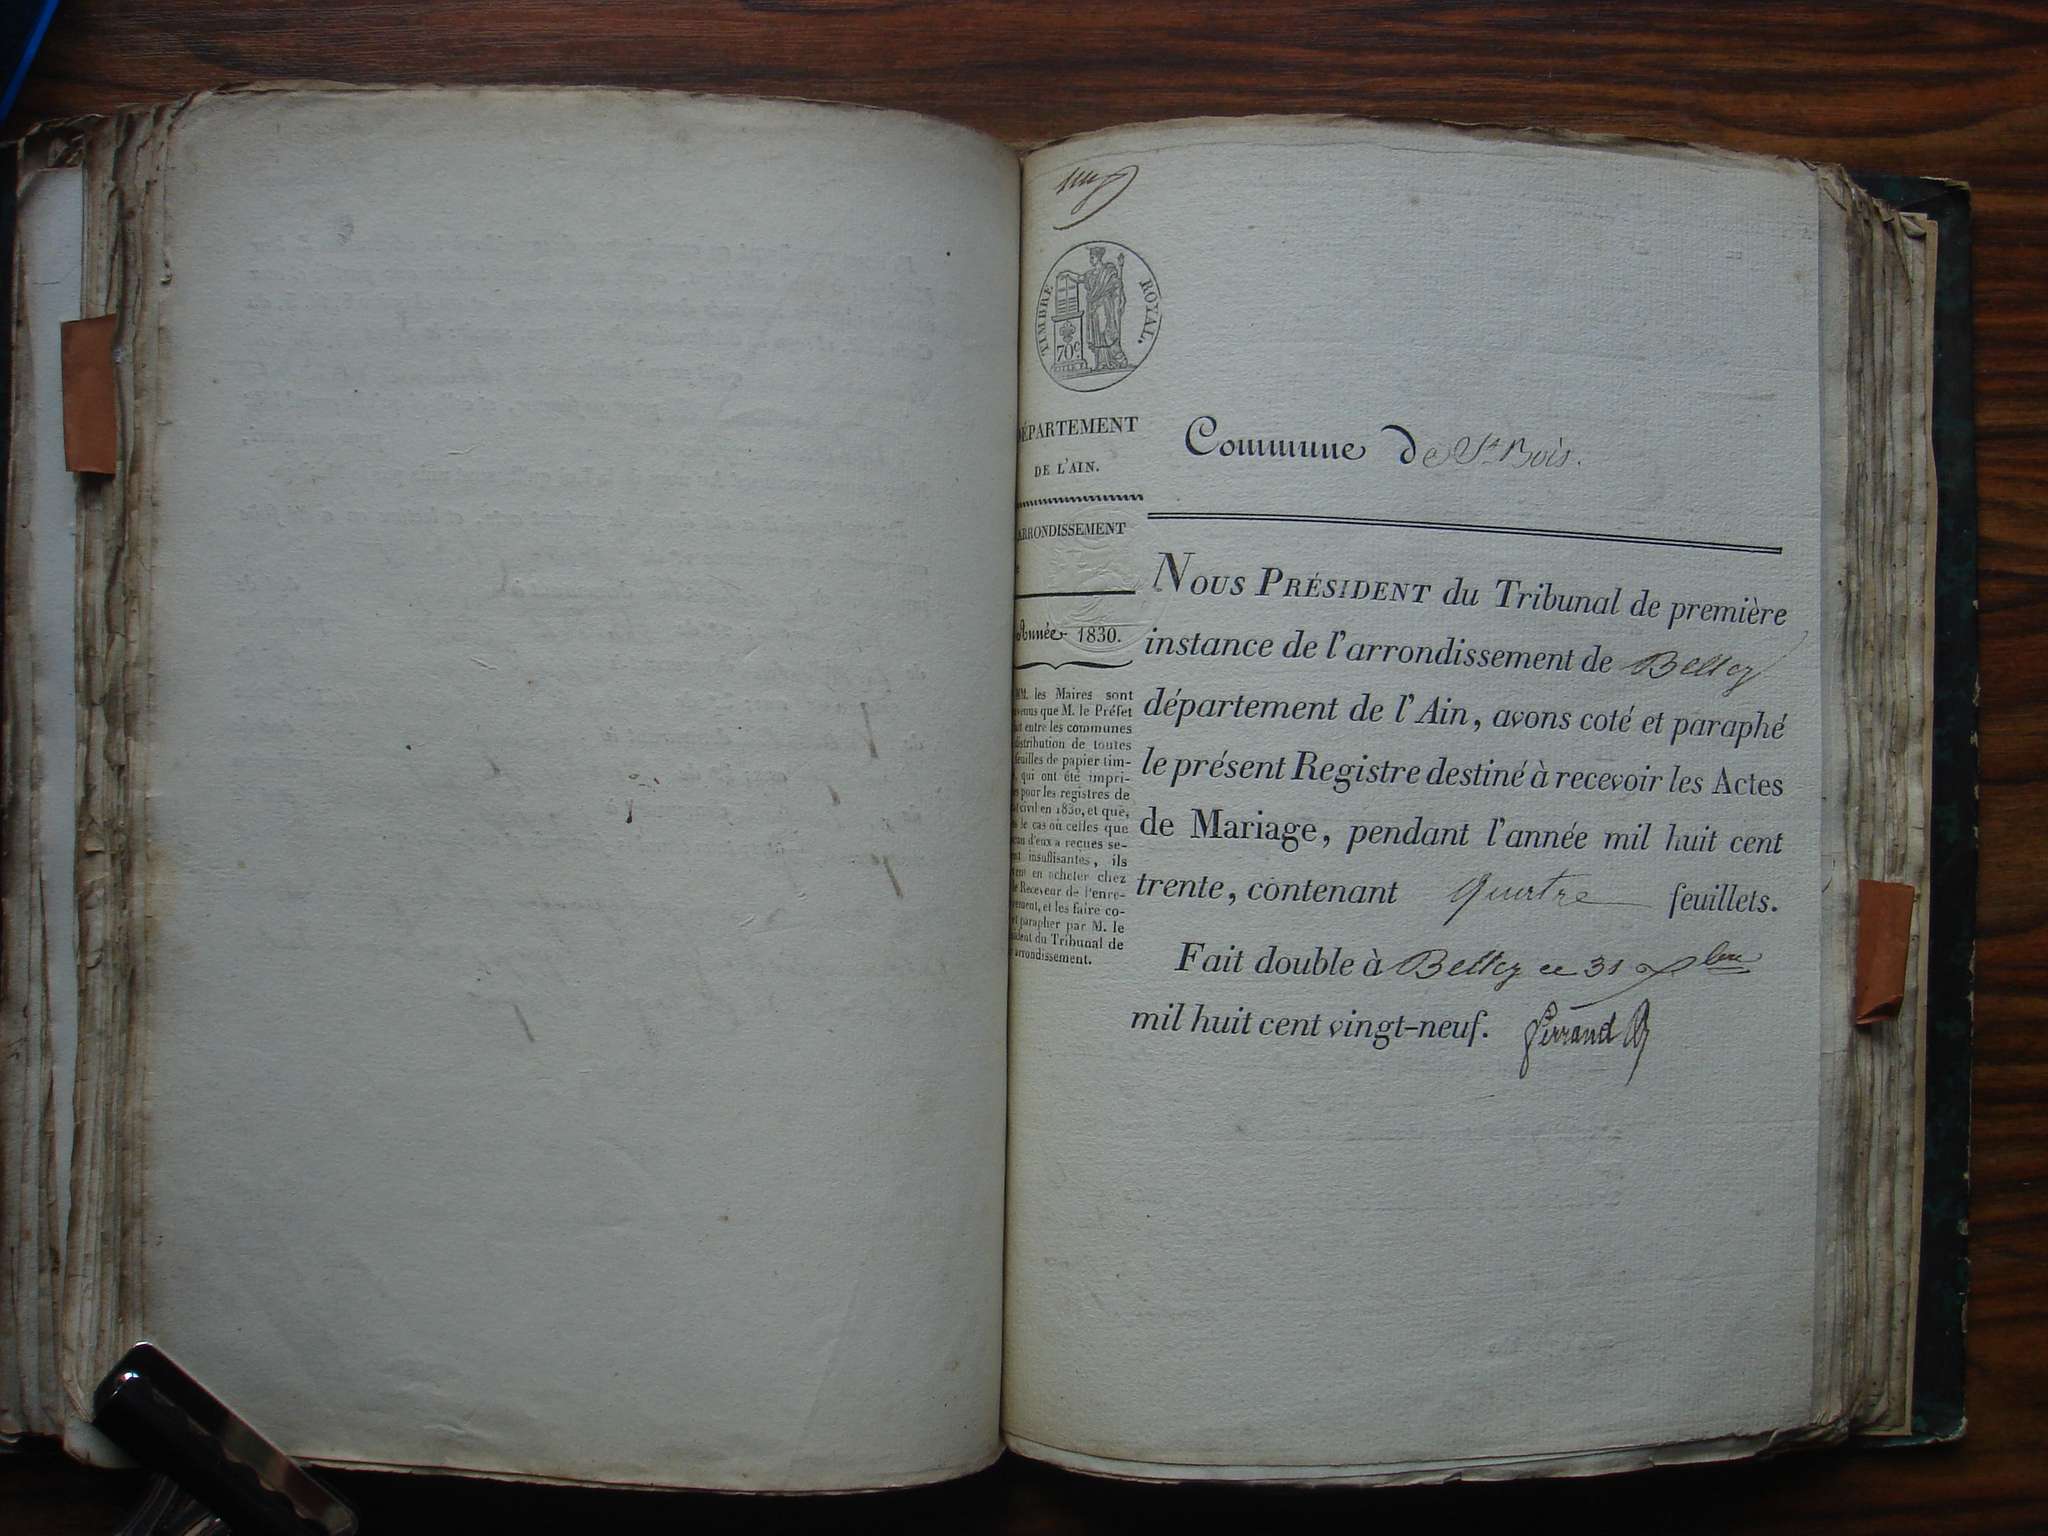 TIMBRE ROYAL.
70c
DÉPARTEMENT
DE L'AIN.
Commune de St. Bois.
ARRONDISSEMENT
Année 1830.
MM. les Maires sont
que M. le Préfet
entre les communes
distribution de toutes
feuilles de papier tim-
qui ont été impri-
pour les registres de
civil en 1830, et que,
le cas où celles que
d'eux a reçues se-
insuffisantes, ils
en acheter chez
le Receveur de l'enre-
et les faire co-
parapher par M. le
du Tribunal de
arrondissement.
NOUS PRÉSIDENT du Tribunal de première
instance de l'arrondissement de Belley
département de l'Ain, avons coté et paraphé
le présent Registre destiné à recevoir les Actes
de Mariage, pendant l'année mil huit cent
trente, contenant quatre feuillets.
Fait double à Belley ce 31 Xbre
mil huit cent vingt-neuf.